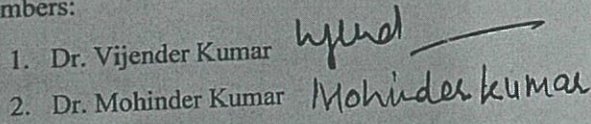 mbers:
1. Dr. Vijender Kumar
2. Dr. Mohinder Kumar Mohinder kumar